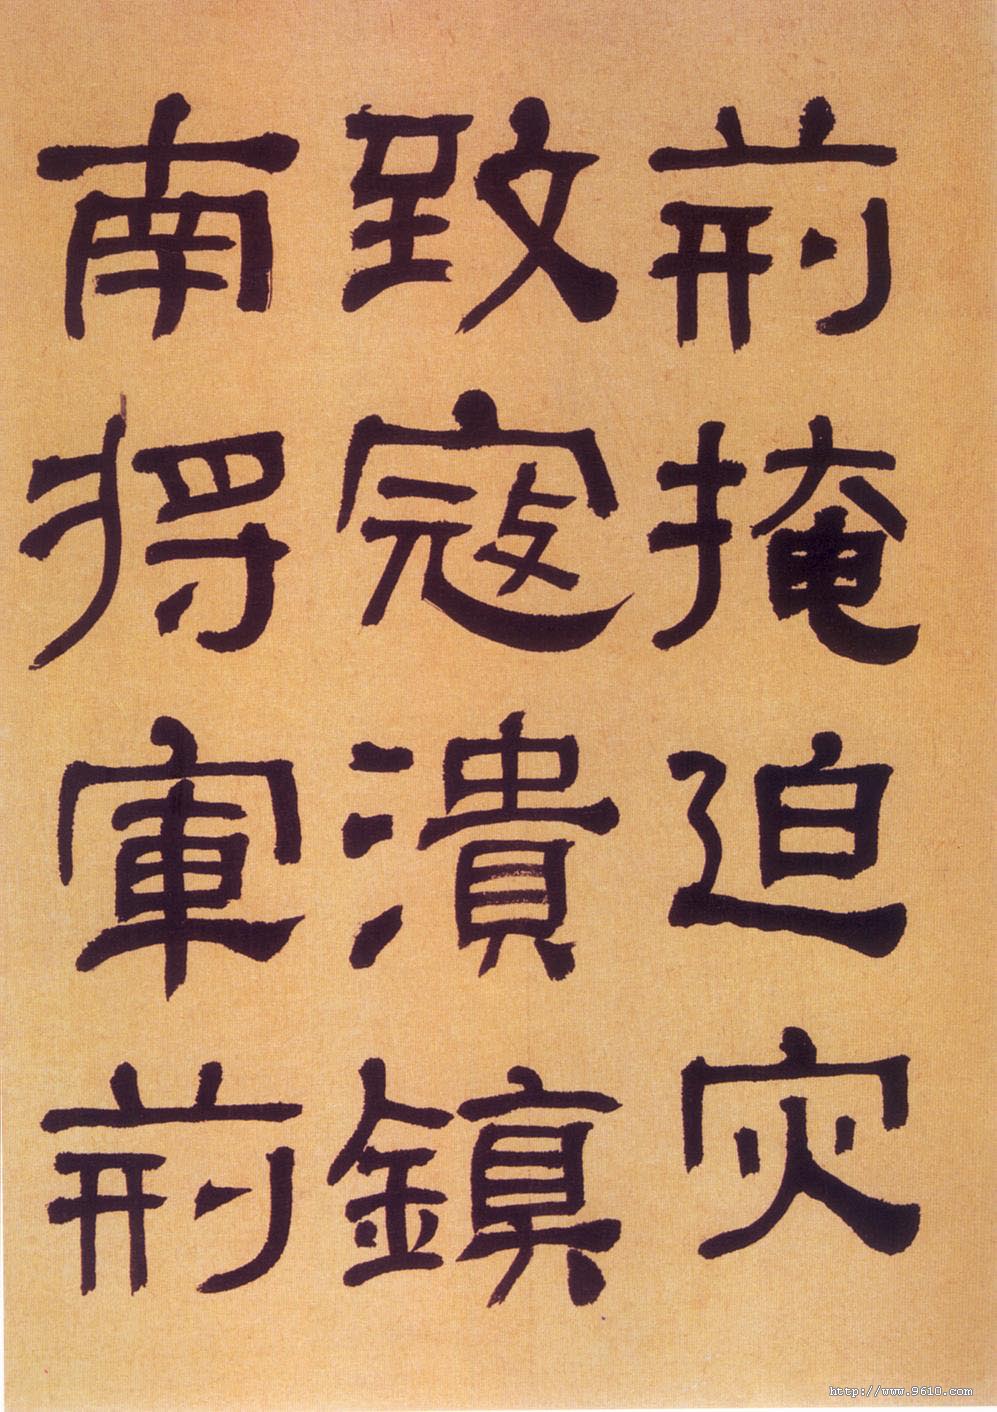 荊掩迫灾
致寇潰鎮
南将軍荊
http://www.9610.com